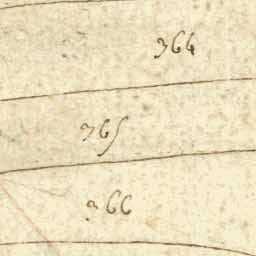 364
365
366